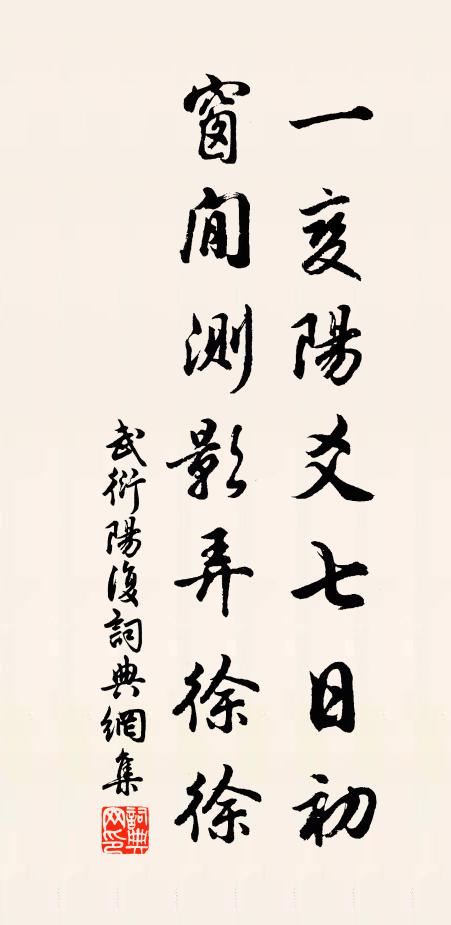 一变陽爻七日初
窗間測影弄徐徐
武衍陽復詞典網集
詞典网印